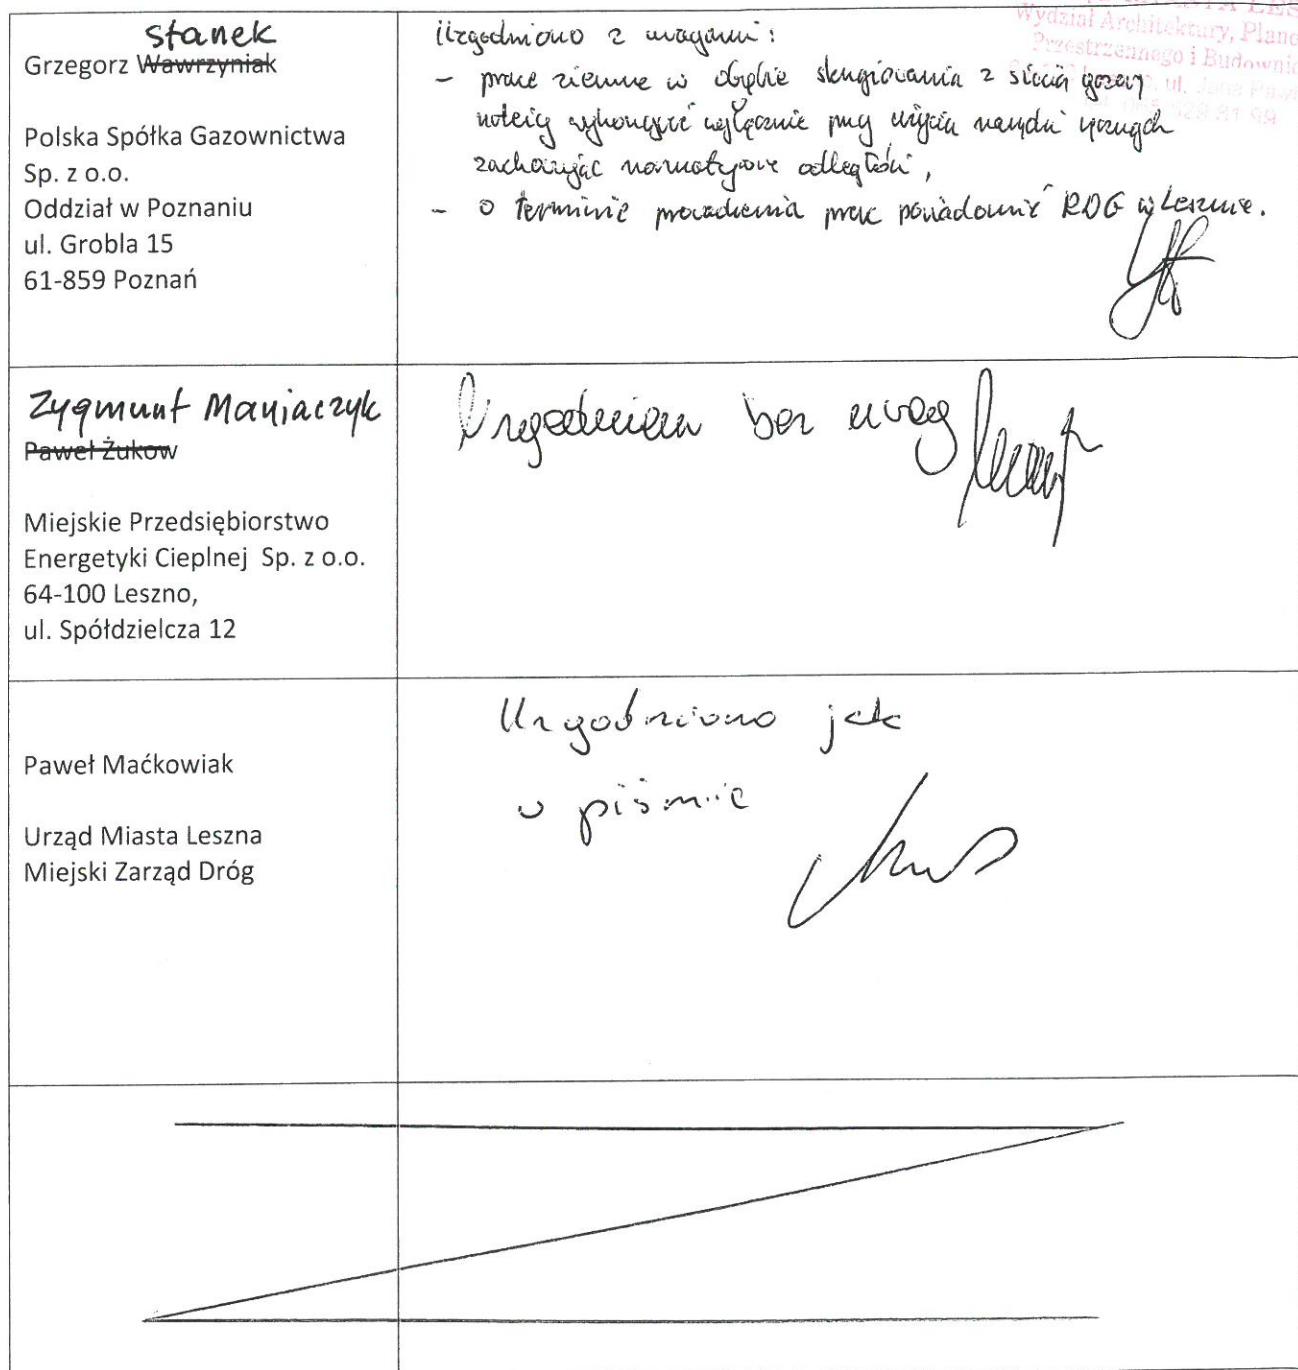 stanek
Grzegorz Wawrzyniak
Polska Spółka Gazownictwa
Sp. z o.o.
Oddział w Poznaniu
ul. Grobla 15
61-859 Poznań
Uzgodniono z uwagami:
- prace ziemne w obrębie skrzyżowania z siecią gazową
należy wykonywać wyłącznie przy użyciu narzędzi ręcznych
zachowując normatywne odległości,
- o terminie prowadzenia prac powiadomić RDG w Lesznie.
MIASTA LES
Wydział Architektury, Plano
Przestrzennego i Budownic
ul. Jana Pawł
Zygmunt Maniaczyk
Paweł Żukow
Miejskie Przedsiębiorstwo
Energetyki Cieplnej Sp. z o.o.
64-100 Leszno,
ul. Spółdzielcza 12
Uzgodniono bez uwag
Paweł Maćkowiak
Urząd Miasta Leszna
Miejski Zarząd Dróg
Uzgodniono jak
w piśmie